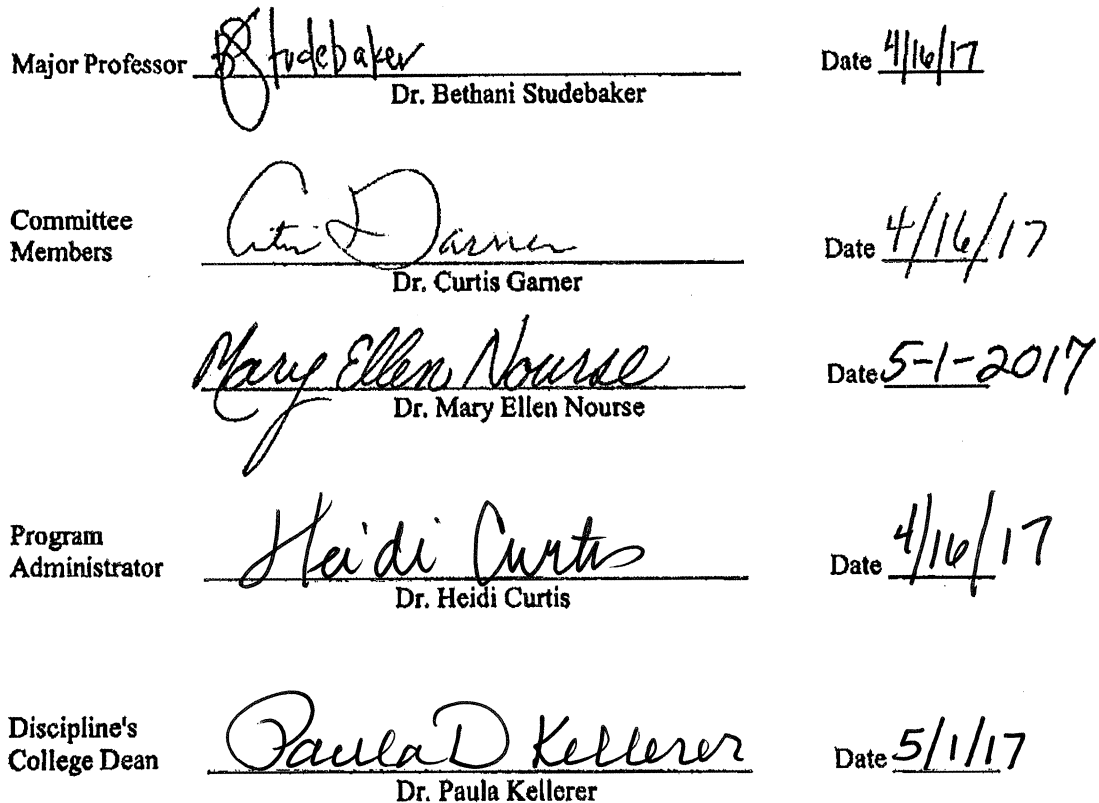 Major Professor BStudebaker Date 4/16/17
Dr. Bethani Studebaker
Committee
Members Date 4/16/17
Dr. Curtis Garner
Mary Ellen Nourse Date 5-1-2017
Dr. Mary Ellen Nourse
Program
Administrator Heidi Curtis Date 4/16/17
Dr. Heidi Curtis
Discipline's
College Dean Paula D Kellerer Date 5/1/17
Dr. Paula Kellerer